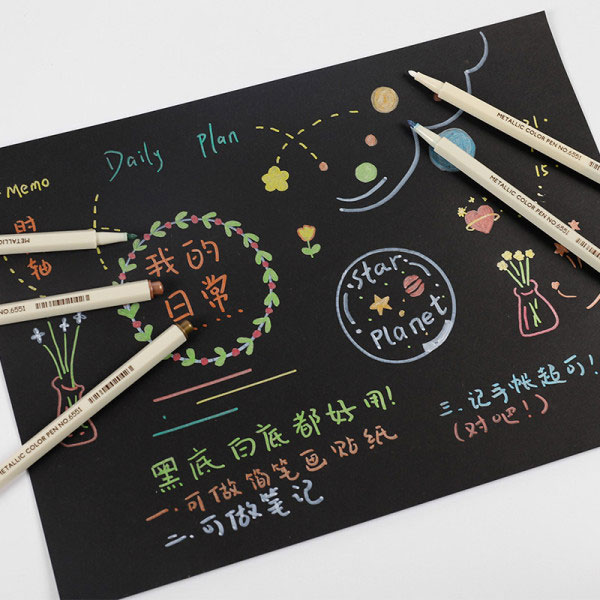 Daily Plan
Memo
时
轴
我的
日常
star
planet
15
黑底白底都好用!
一.可做简笔画贴纸
二.可做笔记
三.记手帐超可!
(对吧!)
METALLIC COLOR PEN NO.6551
METALLIC COLOR PEN NO.6551
METALLIC
METALLIC COLOR PEN NO.6551
METALLIC COLOR PEN NO.6551